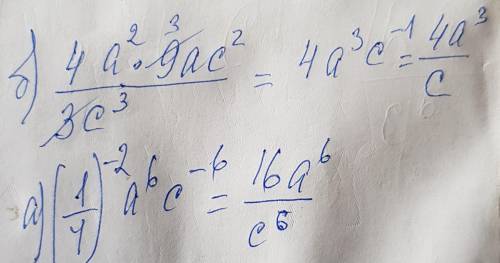 б) (4a² · 9̶³ac²)/(3̶c³) = 4a³c⁻¹ = 4a³/c
а) (1/4)⁻² a⁶c⁻⁶ = 16a⁶/c⁶